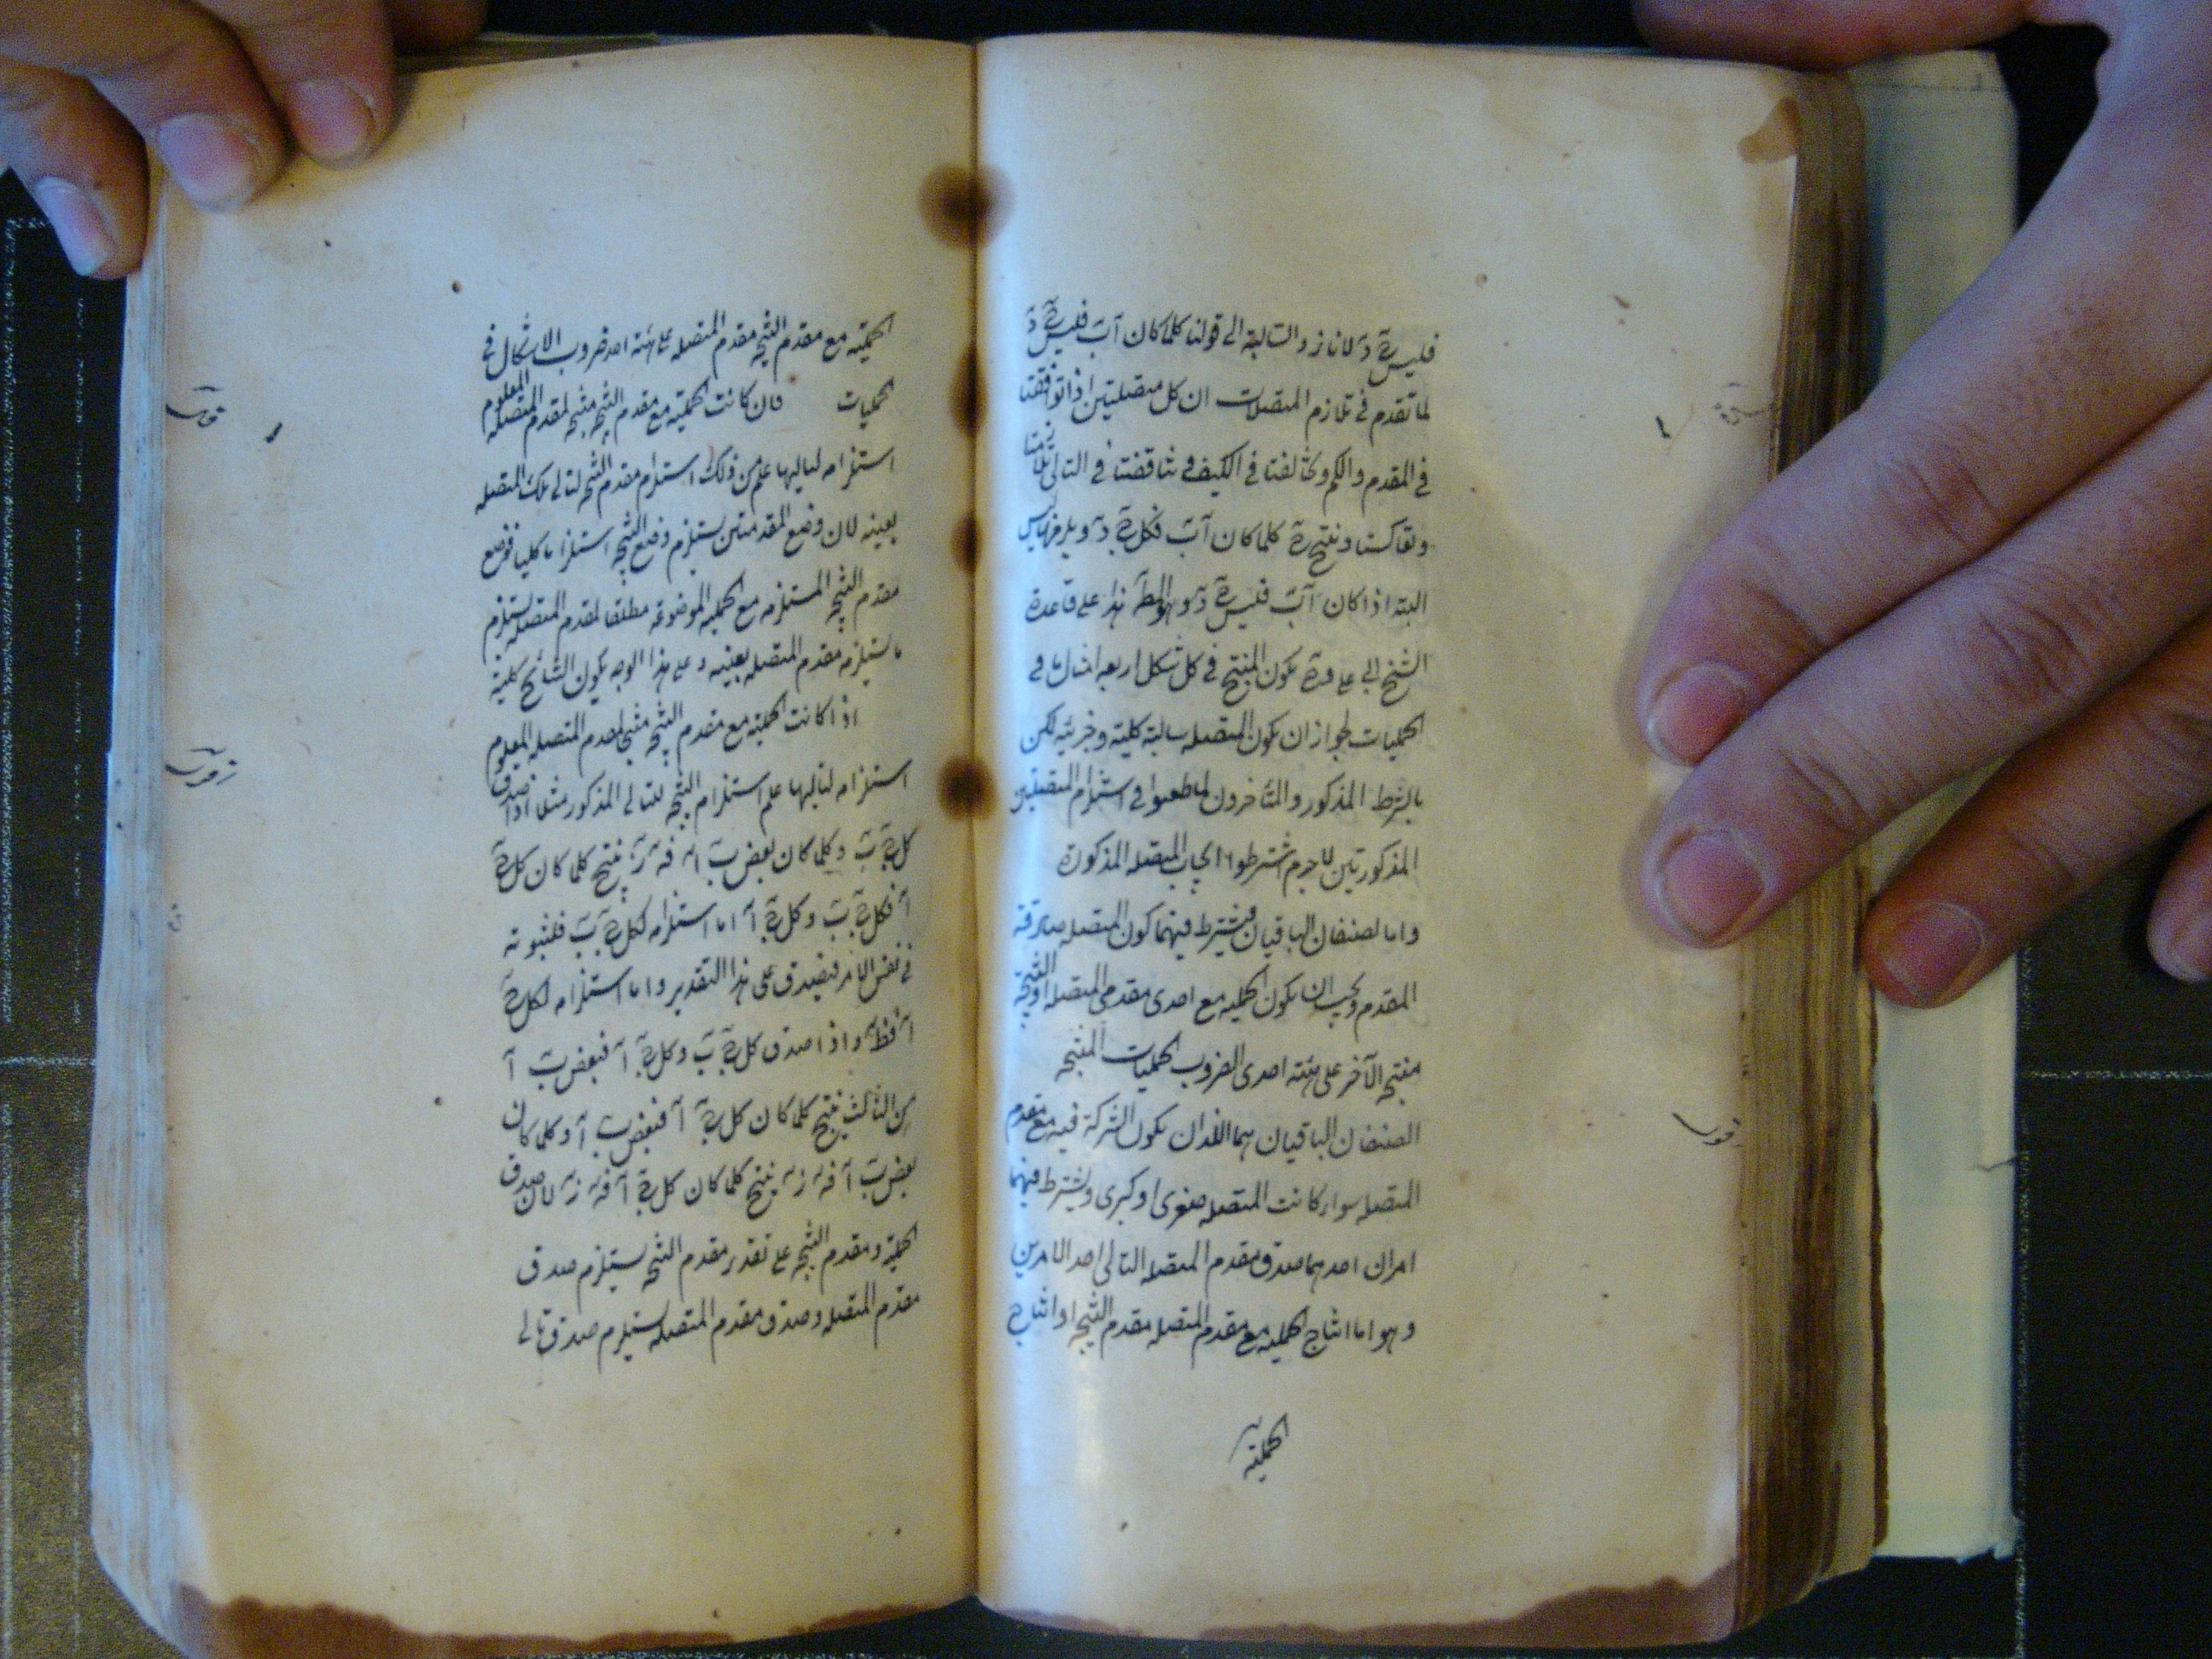 فليس ج د لانا نرد السالبة الى قولنا كلما كان آب فليس ج د
لما تقدم في تلازم المتصلات ان كل متصلتين اذا توافقتا
في المقدم والكم وتخالفتا في الكيف وتناقضتا في التالي تلازمتا
وتعاكستا ونتيجة كلما كان آب فكل ج د ويلزمها ليس
البتة اذا كان آب فليس ج د وهو المط هذا على قاعدة
الشيخ
يكون المنتج في كل شكل اربعة امثال ما في
الحمليات لجواز ان يكون المتصله سالبة كلية وجزئية لكن
بالشرط المذكور والمتأخرون لما طعنوا في استلزام المتصلتين
المذكورتين لا جرم اشترطوا ايجاب المتصله المذكورة
واما الصنفان الباقيان فيشترط فيهما كون المتصله صادقة
المقدم ويجب ان يكون الحملية مع احدى مقدمي المتصله او النتيجة
منتجة الآخر على هيئة احدى الضروب الحمليات المنتجة
الصنفان الباقيان هما اللذان يكون الشركة فيه مع مقدم
المتصله سواء كانت المتصله صغرى او كبرى ويشترط فيهما
امران احدهما صدق مقدم المتصله الثاني احد الامرين
وهو اما انتاج الحملية مع مقدم المتصله مقدم النتيجة او انتاج
الحملية
الحملية مع مقدم النتيجة مقدم المتصله على هيئة احد ضروب الاشكال في
الحمليات فان كانت الحملية مع مقدم النتيجة منتجة لمقدم المتصله المعلوم
استلزامه لتاليها علم من ذلك استلزام مقدم النتيجة لتالي تلك المتصله
بعينه لان وضع المقدمتين يستلزم وضع النتيجة استلزاما كليا فوضع
مقدم النتيجة المستلزم مع الحملية الموضوعة مطلقا لمقدم المتصله يستلزم
ما يستلزمه مقدم المتصله بعينه وعلى هذا الوجه يكون النتائج كلية
اذا كانت الحملية مع مقدم النتيجة منتجة لمقدم المتصله المعلوم
استلزامه لتاليها علم استلزام النتيجة للتالي المذكور مثلا اذا صدق
كل ج ب وكلما كان بعض ب ا فه ز ينتج كلما كان كل ج
ا فكل ج ب وكل ج ا اما استلزامه لكل ج ب فلثبوته
في نفس الامر فيصدق على هذا التقدير واما استلزامه لكل ج
ا فظ واذا صدق كل ج ب وكل ج ا فبعض ب ا
من الثالث ينتج كلما كان كل ج ا فبعض ب ا وكلما كان
بعض ب ا فه ز ينتج كلما كان كل ج ا فه ز لان صدق
الحملية ومقدم النتيجة على تقدير مقدم النتيجة يستلزم صدق
مقدم المتصله وصدق مقدم المتصله يستلزم صدق تالي